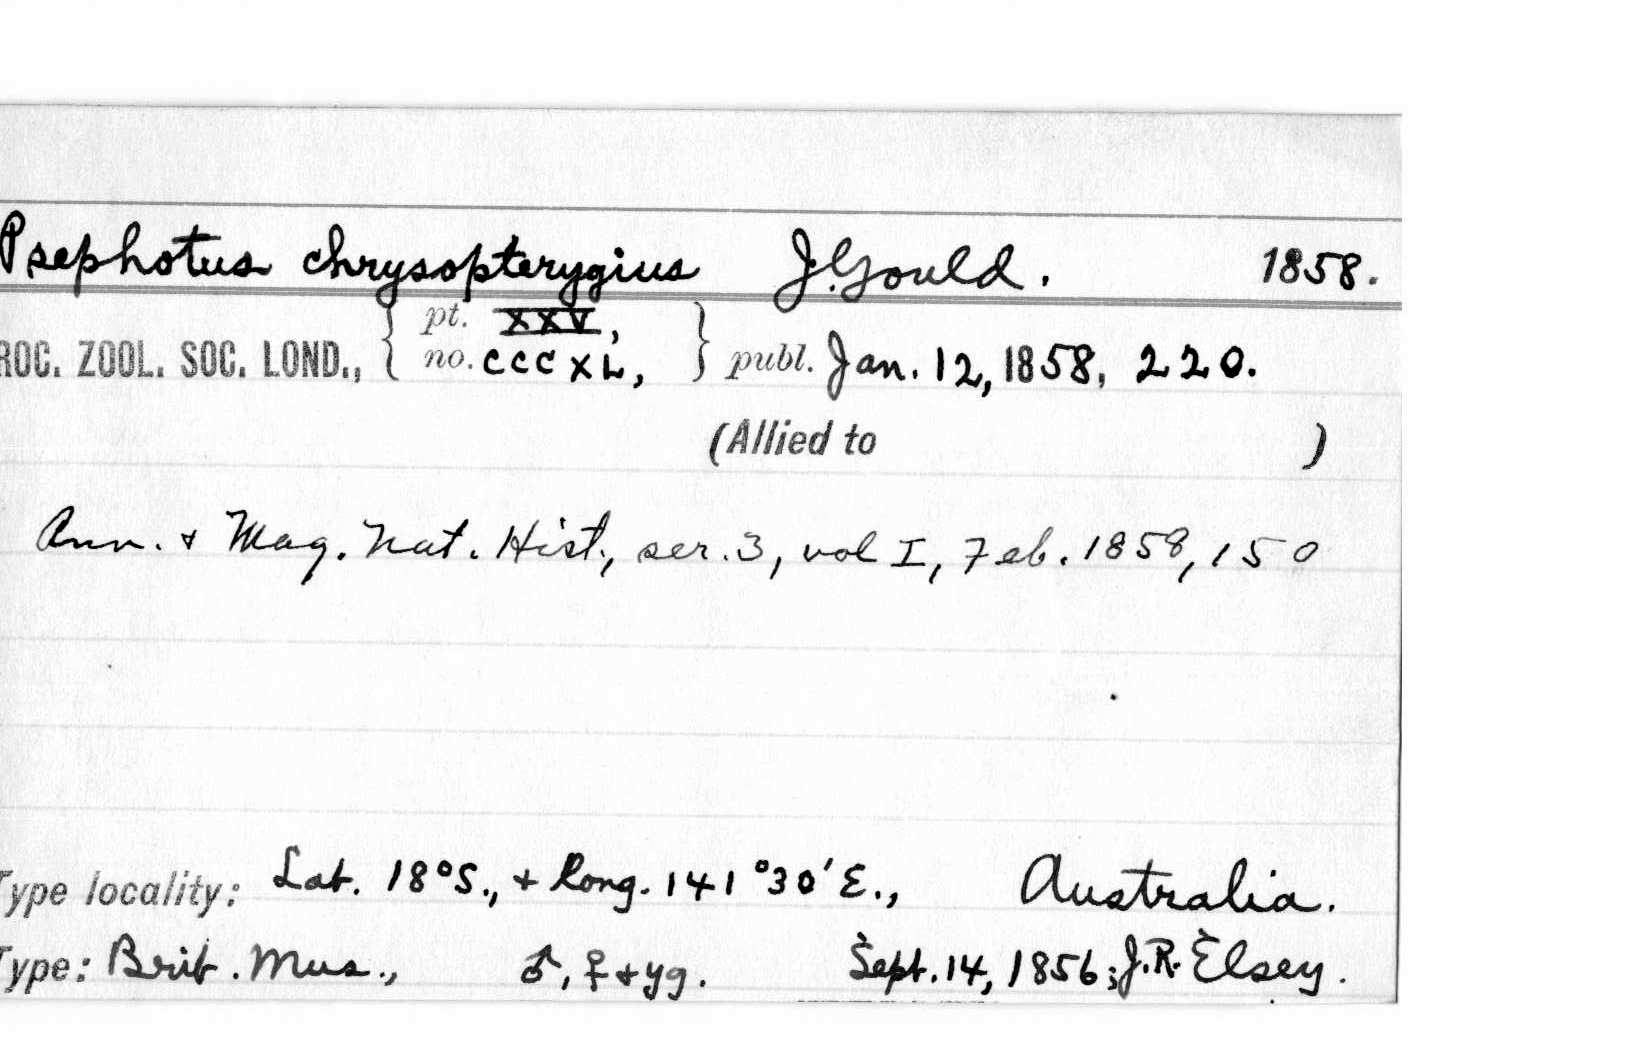 Psephotus chrysopterygius J. Gould. 1858.
ROC. ZOOL. SOC. LOND., { pt. XXV, no. CCCXL, } publ. Jan. 12, 1858, 220.
(Allied to )
Ann. & Mag. Nat. Hist., ser. 3, vol I, Feb. 1858, 150
Type locality: Lat. 18°S., & Long. 141°30'E., Australia.
Type: Brit. Mus., ♂, ♀ & yg. Sept. 14, 1856; J. R. Elsey.